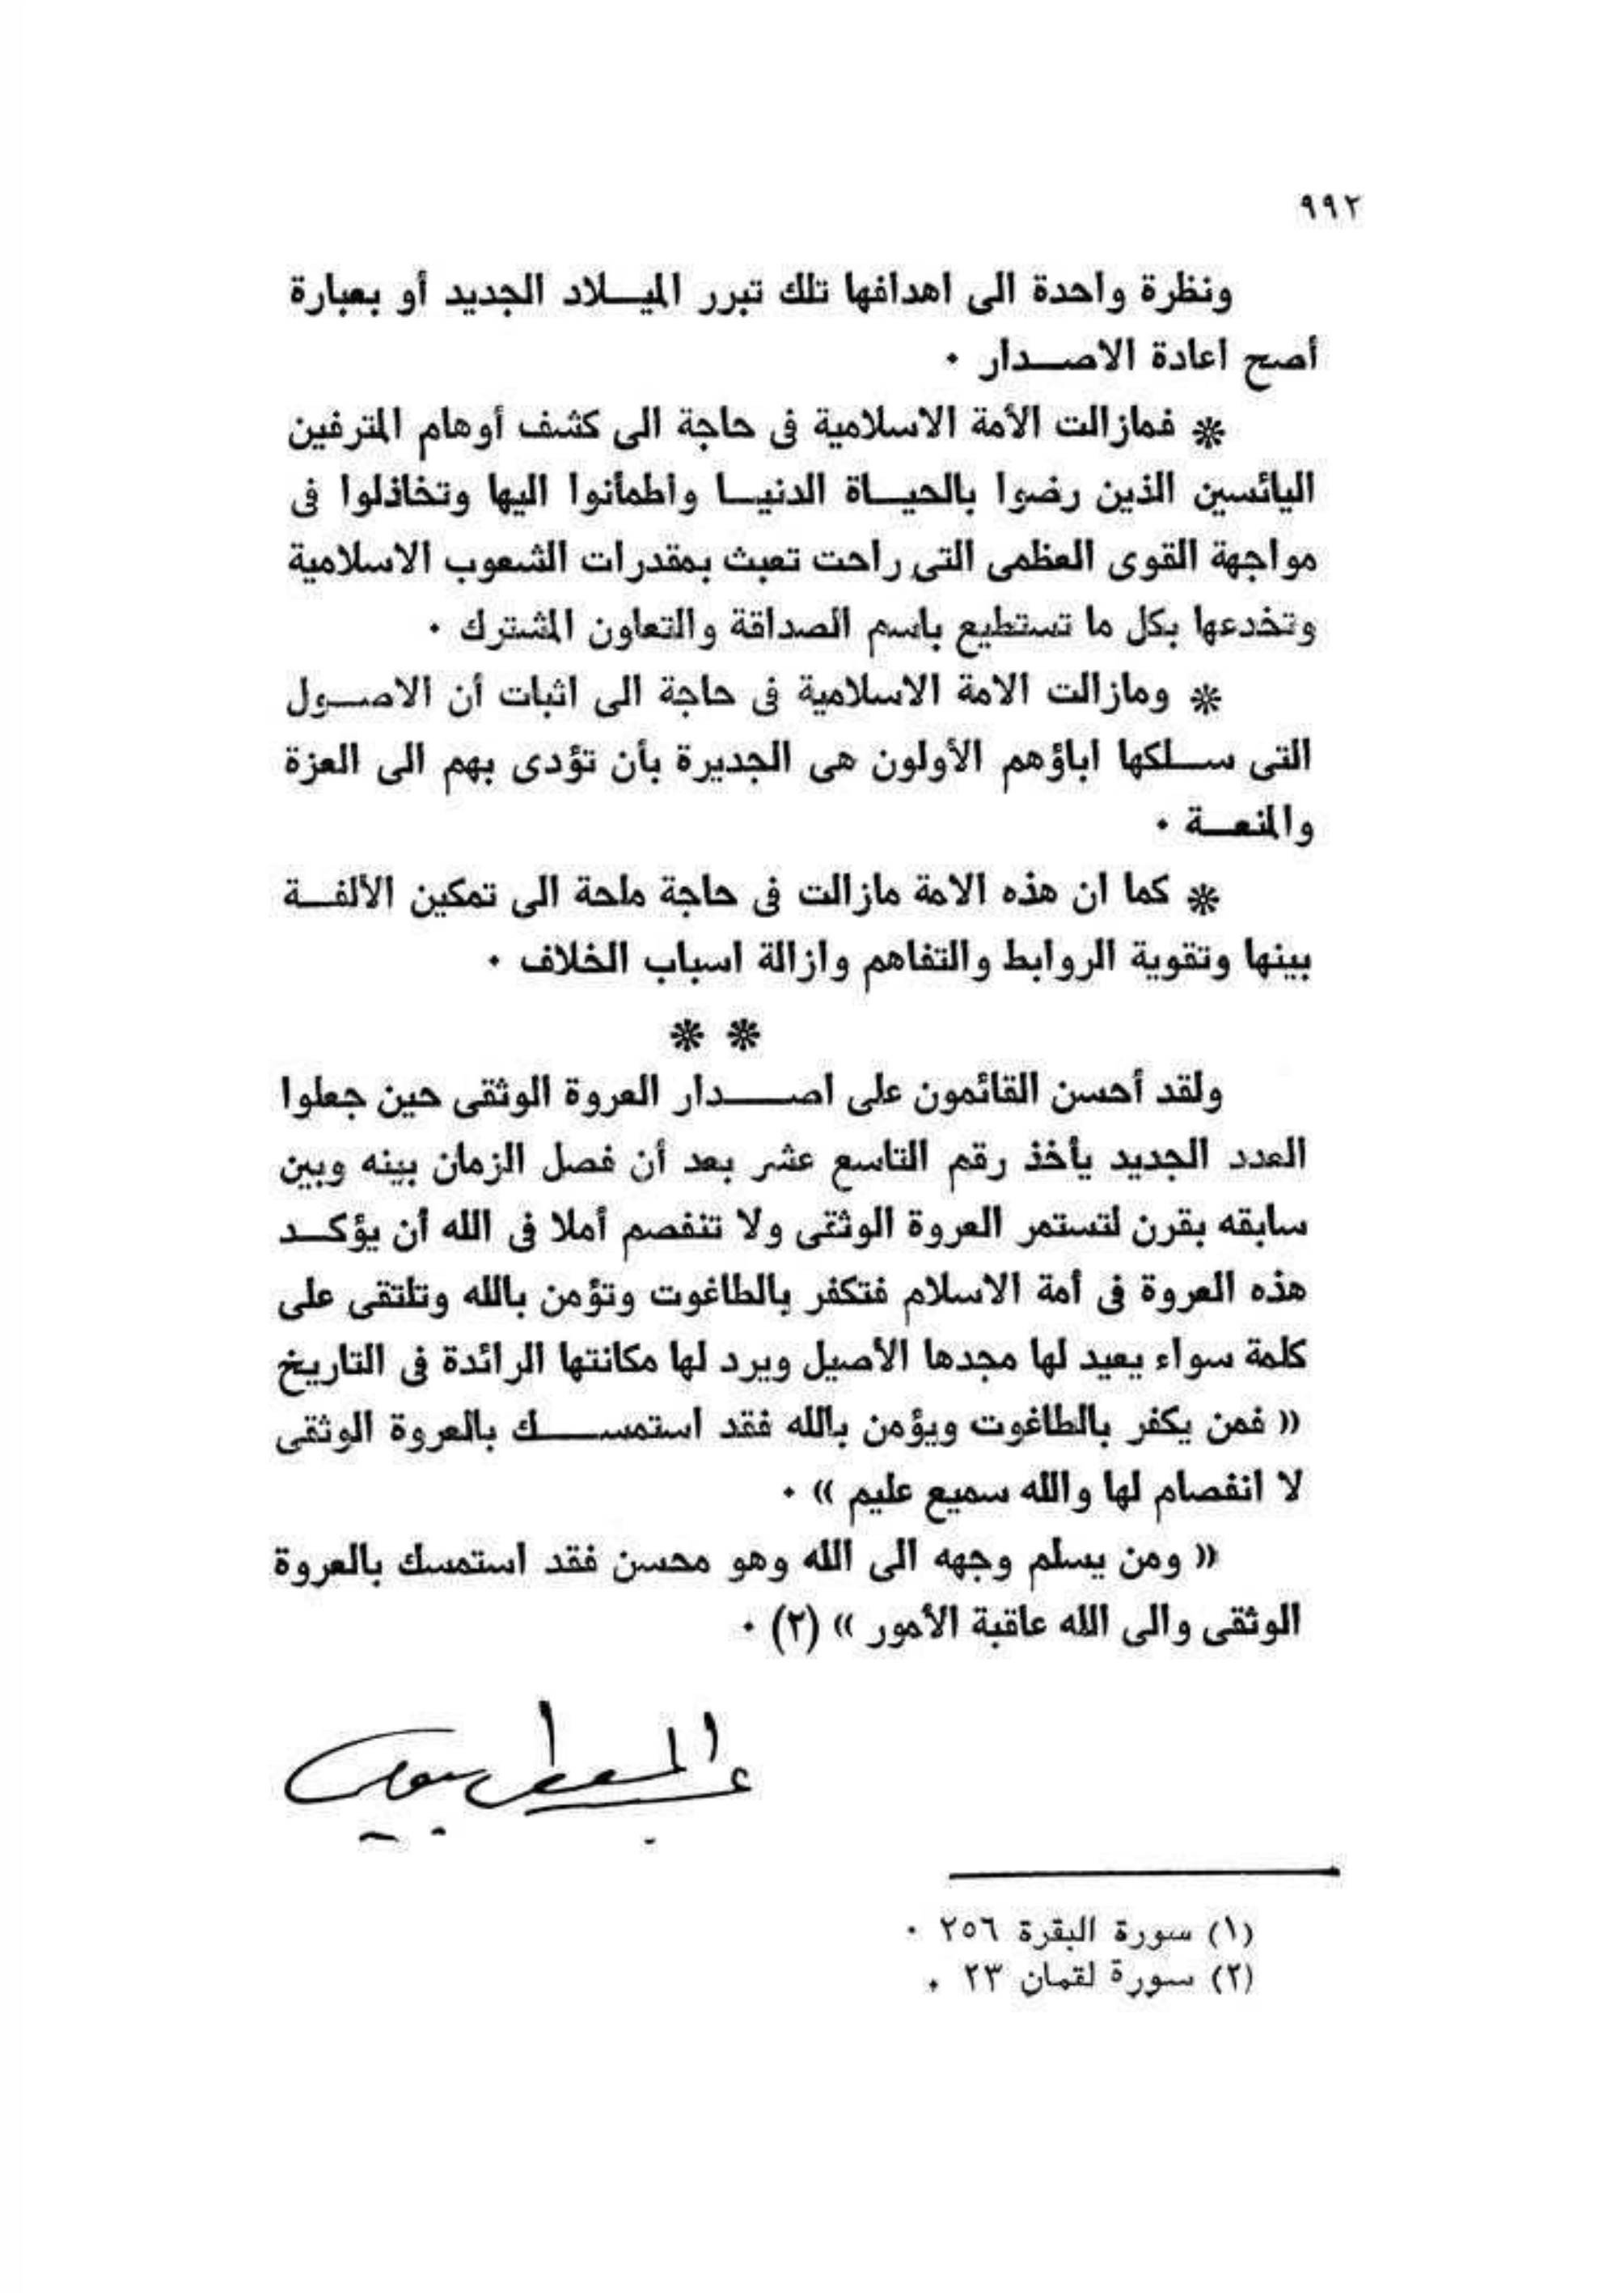 ٩٩٢
ونظرة واحدة الى اهدافها تلك تبرر الميلاد الجديد أو بعبارة
أصح اعادة الاصدار ٠
* فمازالت الأمة الاسلامية فى حاجة الى كشف أوهام المترفين
اليائسين الذين رضوا بالحياة الدنيا واطمأنوا اليها وتخاذلوا فى
مواجهة القوى العظمى التى راحت تعبث بمقدرات الشعوب الاسلامية
وتخدعها بكل ما تستطيع باسم الصداقة والتعاون المشترك ٠
* ومازالت الامة الاسلامية فى حاجة الى اثبات أن الاصول
التى سلكها اباؤهم الأولون هى الجديرة بأن تؤدى بهم الى العزة
والمنعة ٠
* كما ان هذه الامة مازالت فى حاجة ملحة الى تمكين الألفة
بينها وتقوية الروابط والتفاهم وازالة اسباب الخلاف ٠
* *
ولقد أحسن القائمون على اصدار العروة الوثقى حين جعلوا
العدد الجديد يأخذ رقم التاسع عشر بعد أن فصل الزمان بينه وبين
سابقه بقرن لتستمر العروة الوثقى ولا تنفصم أملا فى الله أن يؤكد
هذه العروة فى أمة الاسلام فتكفر بالطاغوت وتؤمن بالله وتلتقى على
كلمة سواء يعيد لها مجدها الأصيل ويرد لها مكانتها الرائدة فى التاريخ
« فمن يكفر بالطاغوت ويؤمن بالله فقد استمسك بالعروة الوثقى
لا انفصام لها والله سميع عليم » ٠
« ومن يسلم وجهه الى الله وهو محسن فقد استمسك بالعروة
الوثقى والى الله عاقبة الأمور » (٢) ٠
(١) سورة البقرة ٢٥٦ ٠
(٢) سورة لقمان ٢٣ ٠